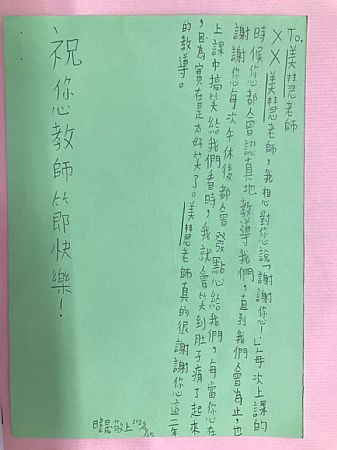 To.美慧老師
XX美慧老師,我想對您說「謝謝您!」每次上課的
時候您都會認真地教導我們,直到我們會為止,也
謝謝您每次午休後都會發點心給我們,每當您在
上課中搞笑給我們看時,我就會笑到肚子痛了起來
,因為實在是太好笑了。美慧老師真的很謝謝您這一年
的教導。
祝您教師節快樂!
敬上